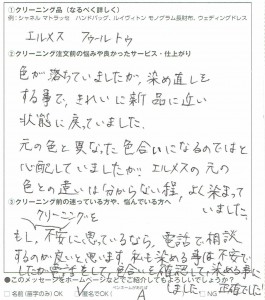 ①クリーニング品(なるべく詳しく)
例:シャネル マトラッセ ハンドバッグ、ルイヴィトン モノグラム長財布、ウェディングドレス
エルメス フールトゥ
②クリーニング注文前の悩みや良かったサービス・仕上がり
色が落ちていましたが、染め直しを
する事で、きれいに新品に近い
状態に戻っていました。
元の色と異なった色合いになるのではと
心配していましたが、エルメスの元の
色との違いは分からない程、よく染まって
いました。
③クリーニング前の迷っている方や、悩んでいる方へ
クリーニングを
もし、不安に思っているなら、電話で相談
するのが良いと思います。私も染める事は不安で
したが電話をして、色合いを確認して、染める事に
しました。正確でした!
●このメッセージをホームページなどでご紹介してもよろしいでしょうか?
ペンネームがあれば
□名前(苗字のみ)OK ∨匿名でOK( A ) □NG